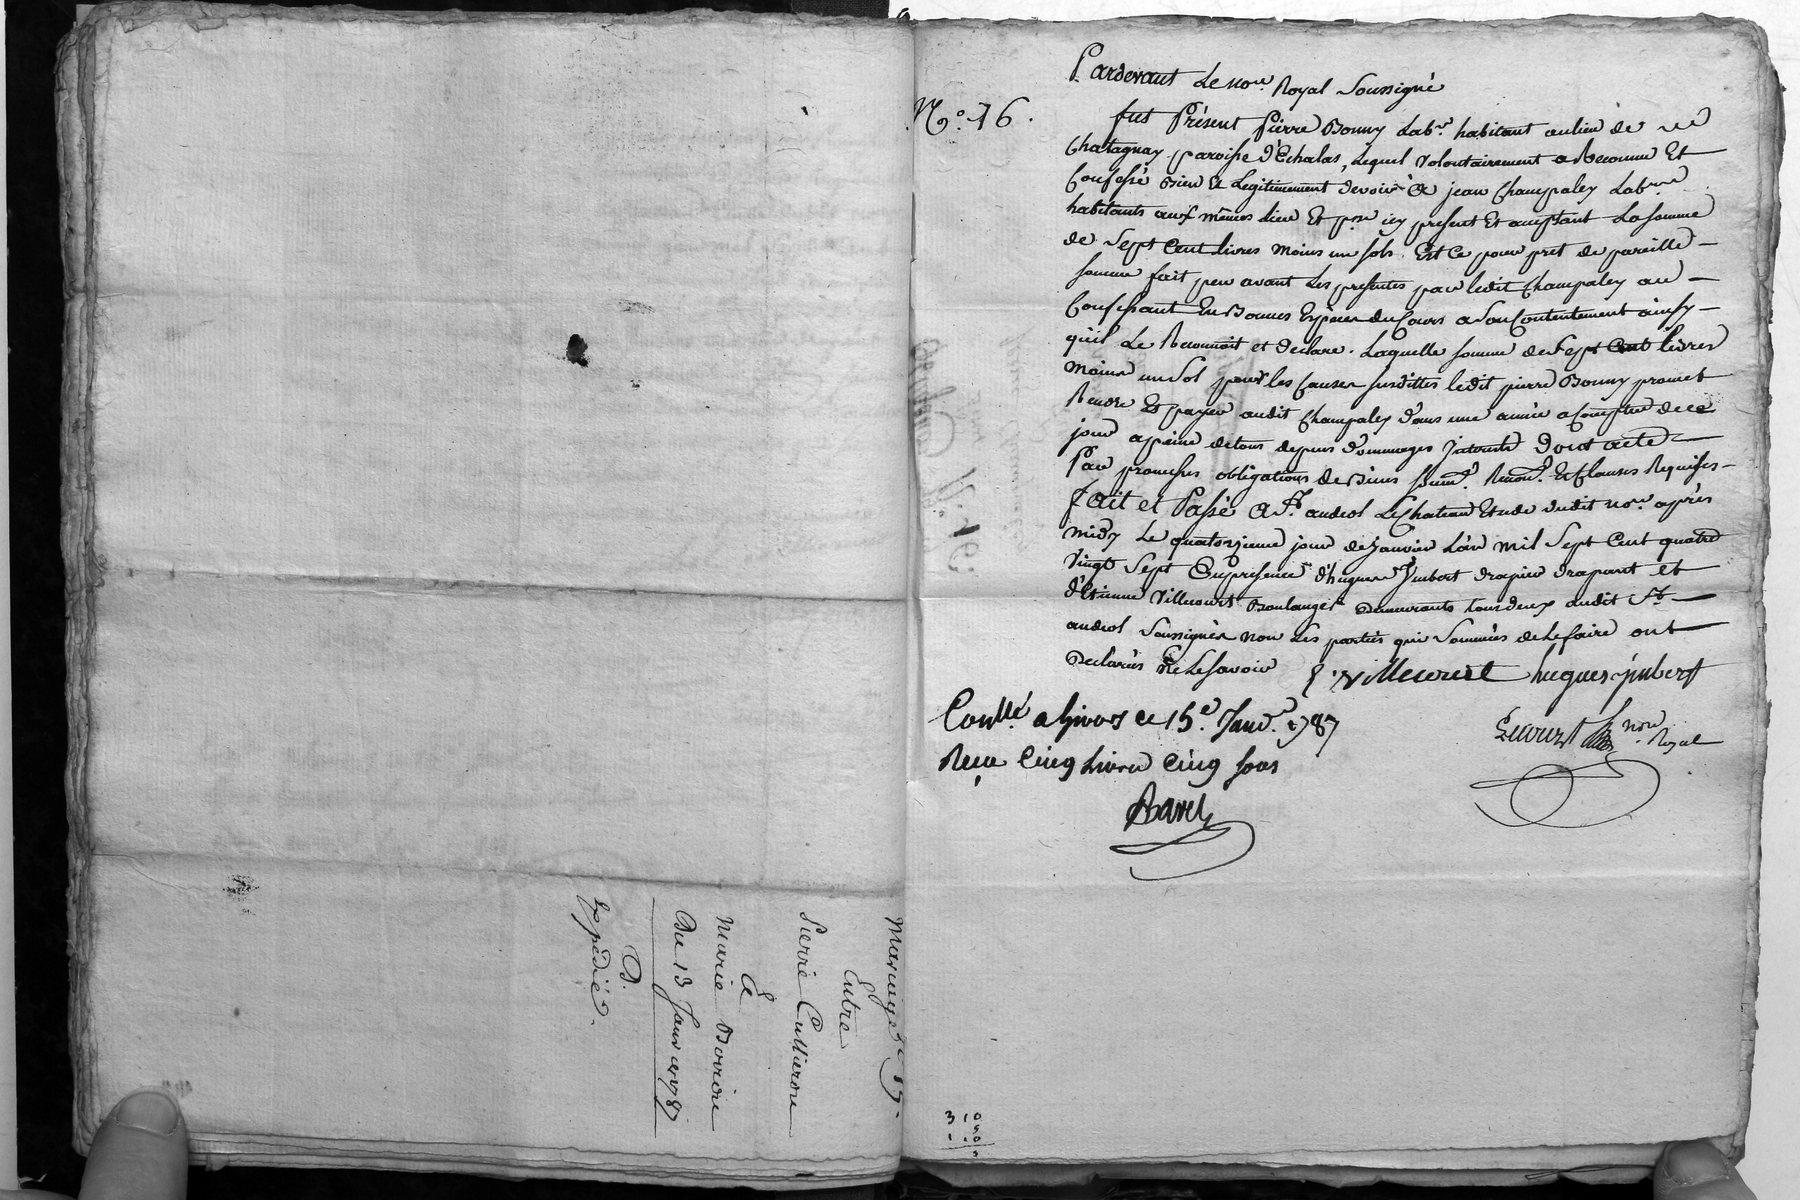 Mariage
Entre
Pierre Cullieron
Et
Marie Boiron
Du 13 Janvier 1787
D.
Expédié.
Pardevant Le nore. Royal Soussigné
No. 16.
fut Présent Pierre Bonny Labr. habitant au lieu de
Chatagnay paroisse d'Echalas, Lequel Volontairement a Reconnu Et
Confessé Bien Et Legitimement devoir à jean Champaley Labr.
habitants aux mêmes lieu Et pse. icy present Et acceptant La somme
de Sept Cent livres moins un sols. Est Ce pour pret de pareille
somme fait peu avant Les presentes par ledit Champaley au
Confessant En Bonnes Especes du Cours a Son Contentement ainsy
qu'il Le Reconnoit et declare. Laquelle somme de Sept Cent livres
moins un Sol pour les Causes susdittes ledit pierre Bonny promet
Rendre Et payer audit Champaley dans une année a Compter de ce
jour a peine de tous depens dommages Interests dont acte
Par promesses obligations de Biens soum. Renon. Et Clauses Requises
fait et Passé a St. andeol Le Chateau Etude dudit nore. après
midy Le quatorzieme jour de janvier L'an mil Sept Cent quatre
Vingt Sept En presence d'hugues Jmbert drapier drapant et
d'Etienne Villecourt Boulanger demeurants tous deux audit St.
andeol Soussignés non Les parties qui Sommées de Le faire ont
Declarées ne Le Savoir E. Villecourt hugues jmbert
Conllé. a Givors ce 15e. Janvr. 1787
Reçu Cinq Livres Cinq Sous
Ravel
nore Royal
3 10
5
1 10
5